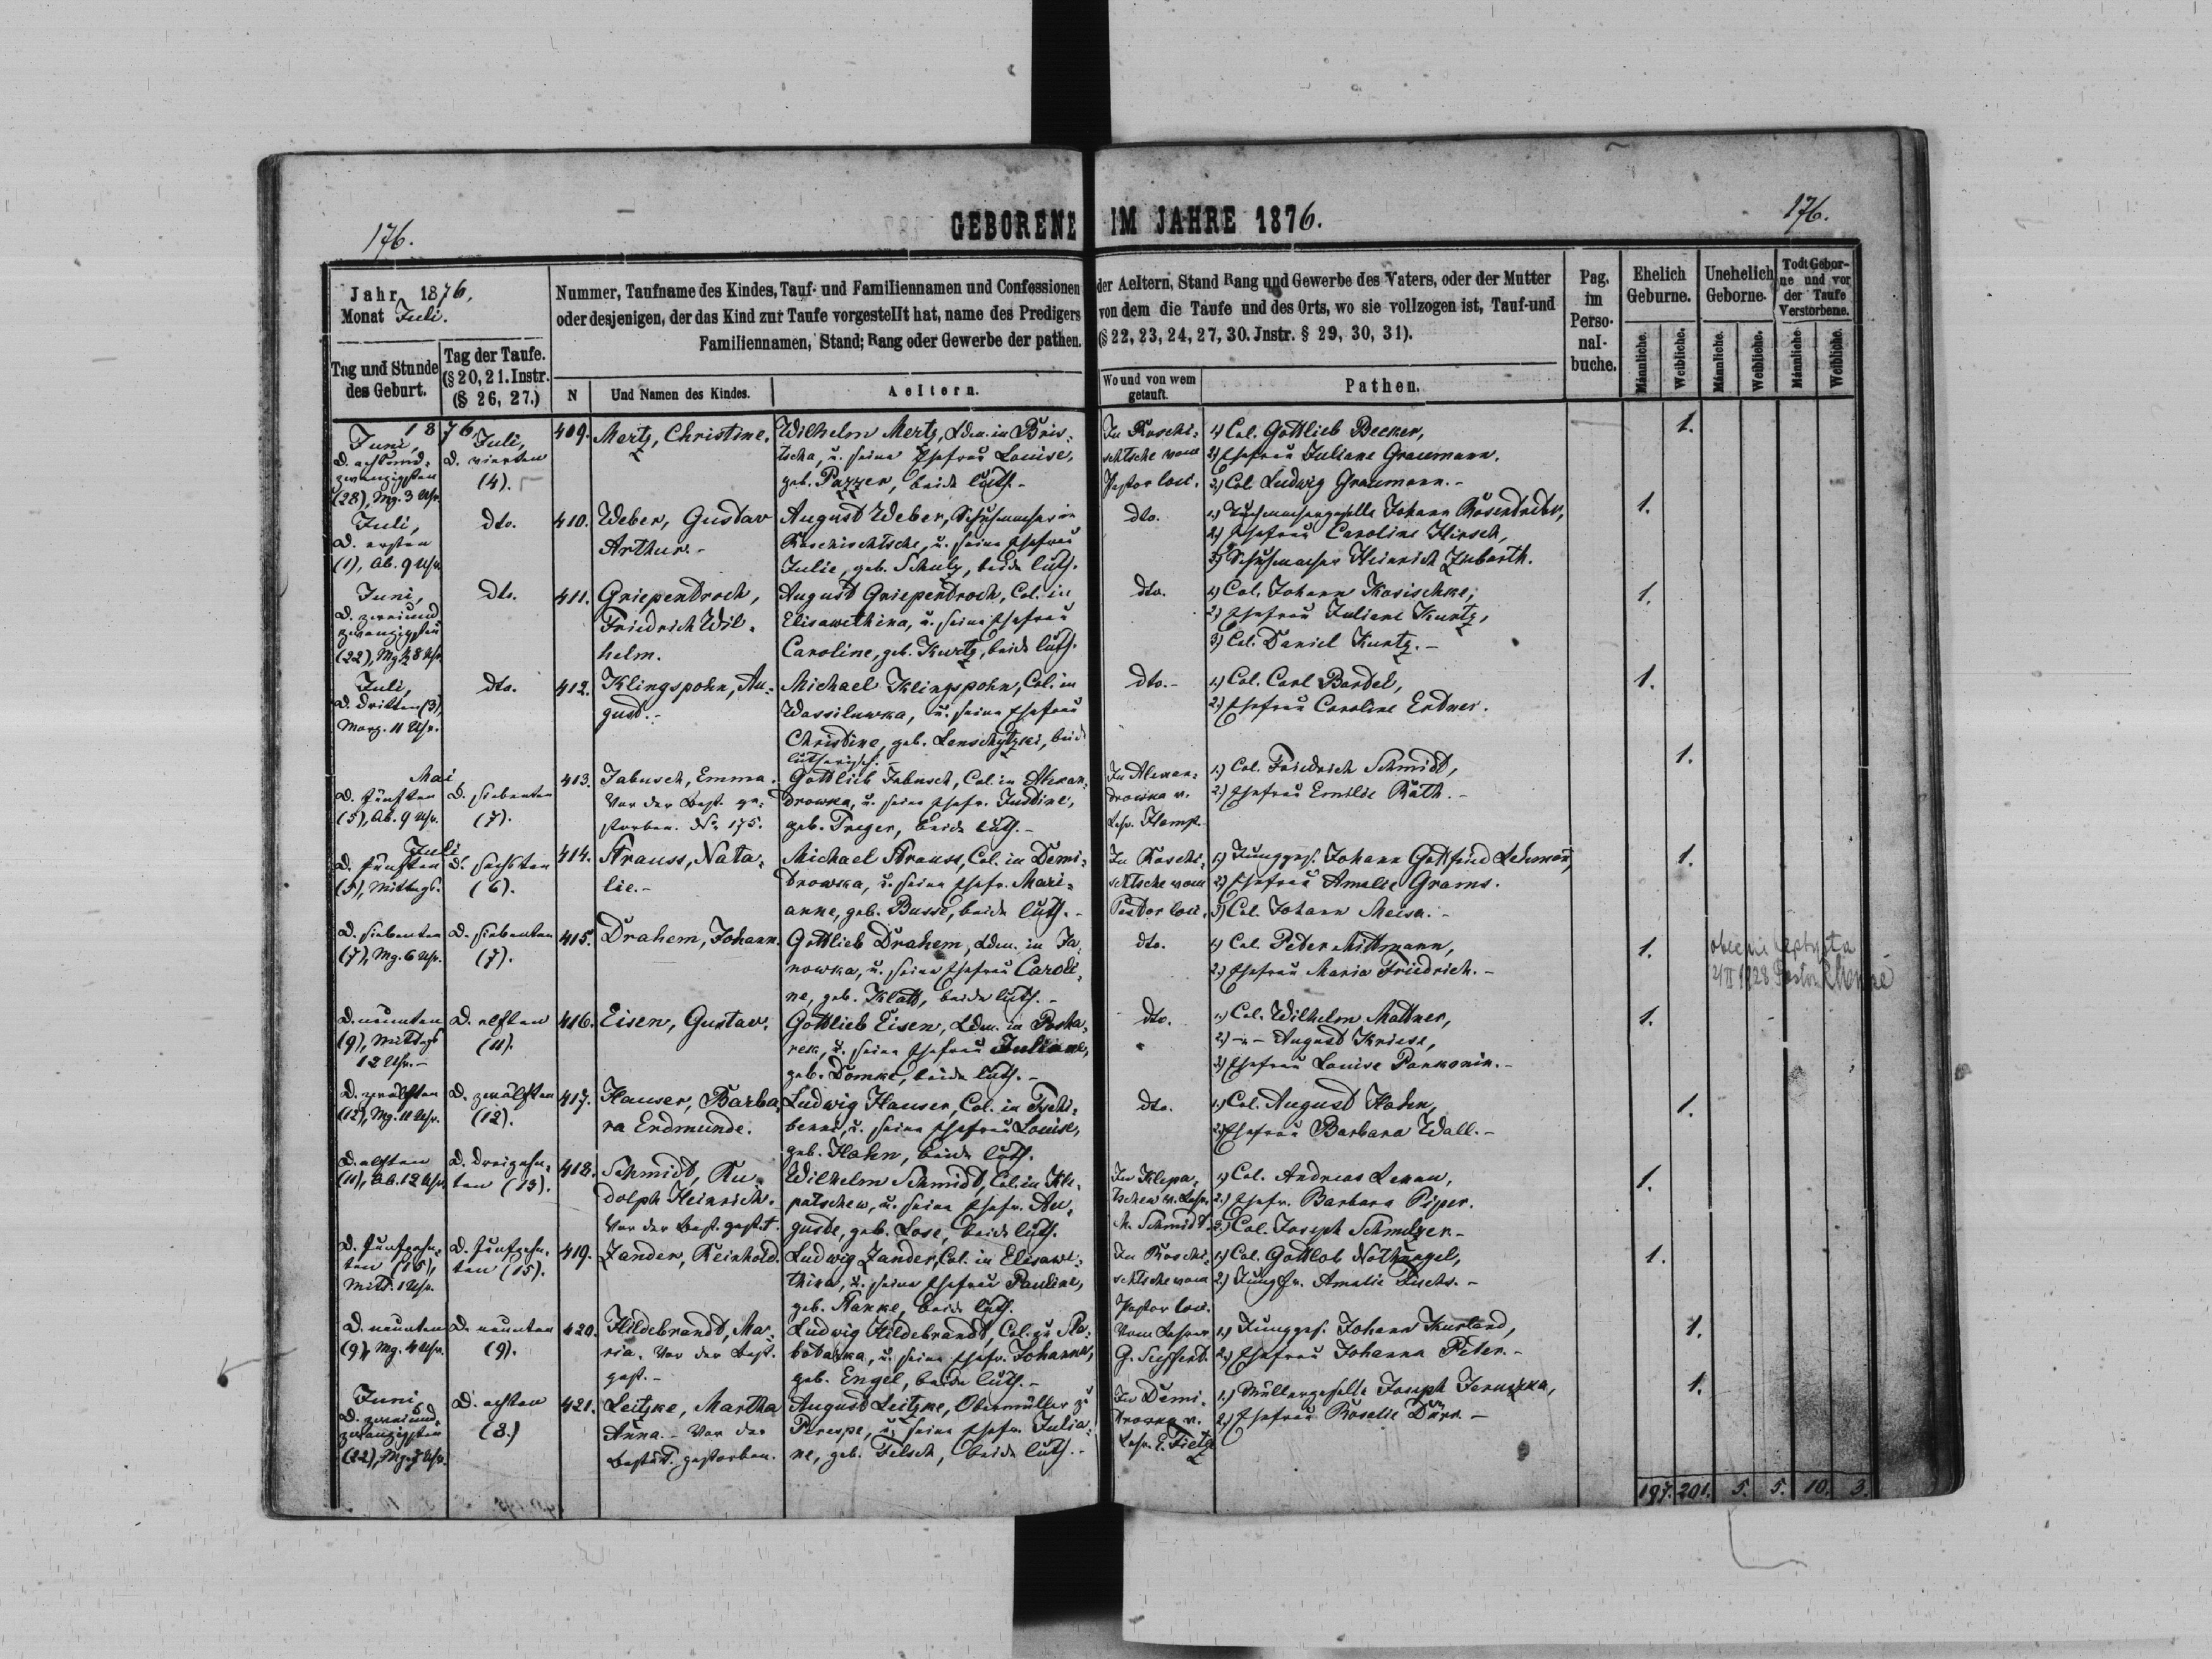 176.
GEBORENE IM JAHRE 1876.
176.
Jahr 1876.
Monat Juli.
Nummer, Taufname des Kindes, Tauf- und Familiennamen und Confessionen der Aeltern, Stand Rang und Gewerbe des Vaters, oder der Mutter
oder desjenigen, der das Kind zur Taufe vorgestellt hat, name des Predigers von dem die Taufe und des Orts, wo sie vollzogen ist, Tauf-und
Familiennamen, Stand; Rang oder Gewerbe der pathen. (§ 22, 23, 24, 27, 30. Jnstr. § 29, 30, 31).
Pag. im Perso- nal- buche.
Ehelich Geburne.
Unehelich Geborne.
Todt Gebor- ne und vor der Taufe Verstorbene.
Männliche. Weibliche. Männliche. Weibliche. Männliche Weibliche.
Tag und Stunde des Geburt.
Tag der Taufe. (§ 20, 21. Instr. (§ 26, 27.)
N
Und Namen des Kindes.
Aeltern.
Wo und von wem getauft.
Pathen.
1876
Juni,
d. achtund-
zwanzigsten
(28), Mg. 3 Uhr
Juli,
d. vierten
(4).
409. Mertz, Christine.
Wilhelm Mertz, Ldm. in Bris-
tscha, u. seine Ehefrau Louise,
geb. Pazzer, beide luth. -
In Roschi-
schtsche vom
Pastor loci.
1) Col. Gottlieb Becker,
2) Ehefrau Juliane Graumann.
3) Col. Ludwig Graumann. -
1.
Juli,
d. ersten
(1), Ab. 9 Uhr.
dto.
410. Weber, Gustav
Arthur. -
August Weber, Schuhmacher in
Roschischtsche, u. seine Ehefrau
Julie, geb. Schulz, beide luth.
dto.
1) Tuchmachergeselle Johann
2) Ehefrau Caroline Hirsch,
3) Schuhmacher Heinrich Zubarth.
1.
Juni,
d. zweiund
zwanzigsten
(22), Mg. 8 Uhr
dto.
411. Griependroch,
Friedrich Wil-
helm.
August Griependroch, Col. in
Elisawethina, u. seine Ehefrau
Caroline, geb. Kurtz, beide luth.
dto.
1) Col. Johann Kosischke,
2) Ehefrau Juliane Kurtz,
3) Col. Daniel Kurtz. -
1.
Juli,
d. dritten (3),
Morg. 11 Uhr.
dto.
412. Klingspohn, Au-
gust. -
Michael Klingspohn, Col. in
Wassilewka, u. seine Ehefrau
Christine, geb. Lenschytzki, beide
lutherisch. -
dto. -
1) Col. Carl Bardel,
2) Ehefrau Caroline Endner.
1.
Mai
d. fünften
(5), Ab. 9 Uhr.
d. siebenten
(7).
413. Jabusch, Emma.
Vor der Best. ge-
storben. No 175.
Gottlieb Jabusch, Col. in Alexan-
drowka, u. seine Ehefr. Justine,
geb. Treger, beide luth. -
In Alexan-
drowka v.
Lehr. Hemp.
1) Col. Friedrich Schmidt,
2) Ehefrau Emilie Räth. -
1.
Juli
d. fünften
(5), Mittags.
d. sechsten
(6).
414. Strauss, Nata-
lie. -
Michael Strauss, Col. in Demi-
drowka, u. seine Ehefr. Mari-
anne, geb. Busse, beide luth. -
In Roschi-
schtsche vom
Pastor loci.
1) Junggs. Johann Gottfried Lehmann,
2) Ehefrau Amalie Grams.
3) Col. Johann
1.
d. siebenten
(7), Mg. 6 Uhr.
d. siebenten
(7).
415. Drahem, Johann.
Gottlieb Drahem, Ldm. in Ja-
nowka, u. seine Ehefrau Caroli-
ne, geb. Klatt, beide luth. -
dto.
1) Col. Peter Mittmann,
2) Ehefrau Maria Friedrich. -
1.
1928 Pastor
d. neunten
(9), Mittags
12 Uhr. -
d. elften
(11).
416. Eisen, Gustav.
Gottlieb Eisen, Ldm. in Poska-
rek, u. seine Ehefrau Juliane,
geb. Domke, beide luth. -
dto.
1) Col. Wilhelm Mattner,
2) -"- August Kriese,
3) Ehefrau Louise Pankonin. -
1.
d. zwölften
(12), Mg. 11 Uhr.
d. zwölften
(12).
417. Hauser, Barba-
ra Erdmunde.
Ludwig Hauser, Col. in
u. seine Ehefrau Louise,
geb. Hahn, beide luth.
dto.
1) Col. August Hahn,
2) Ehefrau Barbara Wall. -
1.
d. elften
(11), Ab. 12 Uhr.
d. dreizehn-
ten (13).
418. Schmidt, Ru-
dolph Heinrich.
Vor der Best. gest. †.
Wilhelm Schmidt, Col. in Kle-
patschew, u. seine Ehefr. Au-
guste, geb. Lose, beide luth.
In Klepa-
tschew v. Lehr.
M. Schmidt.
1) Col. Andreas
2) Ehefr. Barbara Piper.
3) Col. Joseph Schmelzer -
1.
d. fünfzehn-
ten (15),
Mitt. 1 Uhr.
d. fünfzehn-
ten (15).
419. Zander, Reinhold.
Ludwig Zander, Col. in Elisawe-
thina, u. seine Ehefrau Pauline,
geb. Hanke, beide luth.
In Roschi-
schtsche vom
Pastor loci.
1) Col. Gottlob Nothnagel,
2) Jungfr. Amalie Fuchs. -
1.
d. neunten
(9), Mg. 4 Uhr.
d. neunten
(9).
420. Hildebrandt, Ma-
ria. Vor der Best.
gest. -
Ludwig Hildebrandt, Col. zu
u. seine Ehefr. Johanne,
geb. Engel, beide luth. -
Vom Lehrer
G. Seiffert.
1) Junggs. Johann Kurland,
2) Ehefrau Johanna Peter. -
1.
Juni
d. zweiund-
zwanzigsten
(22), Mg. 7 Uhr.
d. achten
(8.)
421. Leitzke, Martha
Anna. - Vor der
Bestät. gestorben.
August Leitzke, Obermüller zu
Perespe, u. seine Ehefr. Julia-
ne, geb. Felsch, beide luth. -
In Demi-
drowka v.
Lehr. E. Fietz
1) Müllergeselle Joseph
2) Ehefrau Rosalie Dürr. -
1.
197. 201. 5. 5. 10. 3.